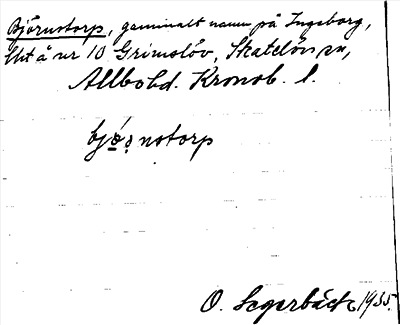 Björnstorp, gammalt namn på Ingaborg,
litt å nr 10 Grimslöv, Skatelövs sn,
Allbo hd. Kronob. l.
bjö̀rnstorp
O. Segerbäck 1935.